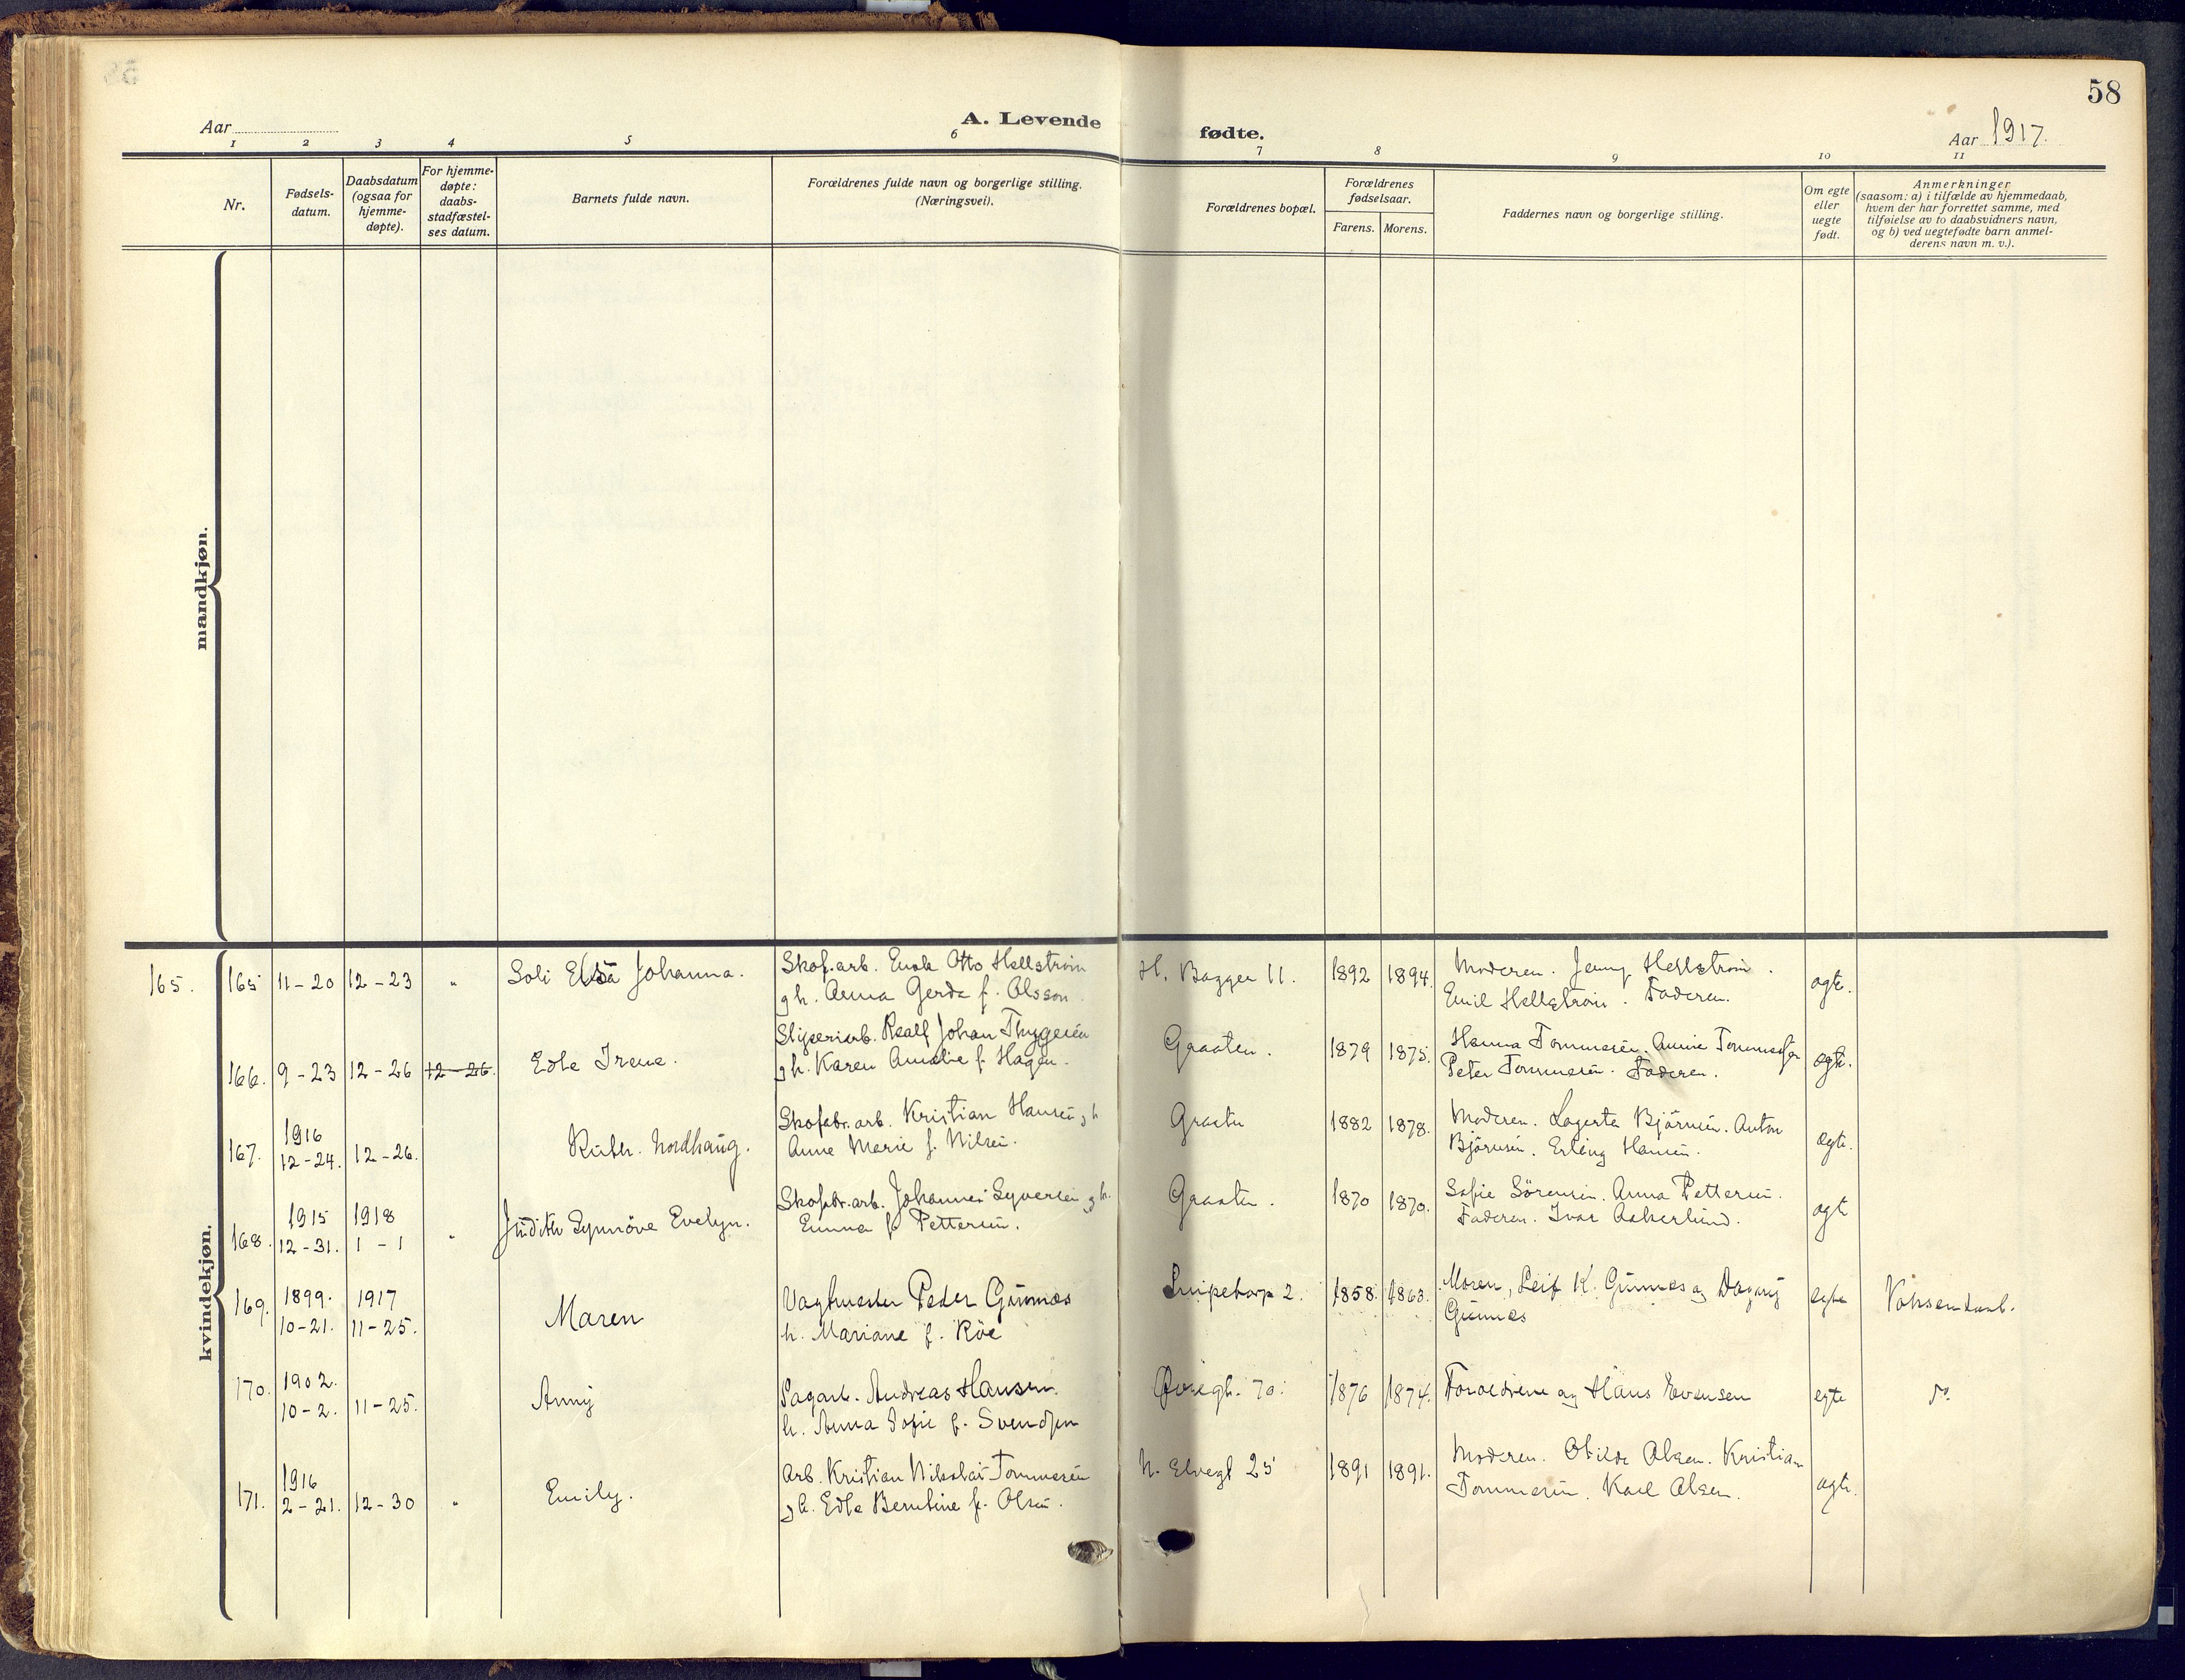 58
Aar
A. Levende
fødte.
Aar 1917.
1 2 3 4 5 6 7 8 9 10 11
Nr.
Fødsels-
datum.
Daabsdatum
(ogsaa for
hjemme-
døpte).
For hjemme-
døpte:
daabs-
stadfæstel-
ses datum.
Barnets fulde navn.
Forældrenes fulde navn og borgerlige stilling.
(Næringsvei).
Forældrenes bopæl.
Forældrenes
fødselsaar.
Farens. Morens.
Faddernes navn og borgerlige stilling.
Om egte
eller
uegte
født.
Anmerkninger
(saasom: a) i tilfælde av hjemmedaab,
hvem der har forrettet samme, med
tilføielse av to daabsvidners navn,
og b) ved uegtefødte barn anmel-
derens navn m. v.).
mandkjøn.
kvindekjøn.
165.
165 11-20 12-23 „ Soli Elsa Johanna.
Skof.arb. Enok Otto Hellström
g h. Anna Gerda f. Olsson.
H. Bagges 11. 1892 1894.
Moderen. Jenny Hellström.
Emil Hellström. Faderen.
ægte.
166. 9-23 12-26 12-26. Edle Irene.
Sliperiarb. Realf Johan Thygesen
g h. Karen Amalie f. Hagen.
Graaten. 1879 1875.
Hanna Tommesen. Annie Tommesen
Peter Tommesen. Faderen.
ægte.
167. 1916
12-24. 12-26. Ruth. Nordhaug.
Skofabr.arb. Kristian Hansen g h
Anne Marie f. Nilsen.
Graaten 1882 1878.
Moderen. Lagerta Bjørnsen. Anton
Bjørnsen. Erling Hansen.
ægte.
168. 1915 1918
12-31. 1-1 „ Judith Synnöve Evelyn.
Skofabr.arb. Johannes Syversen g h.
Emma f. Pettersen.
Graaten. 1870 1870.
Sofie Sörensen. Anna Pettersen.
Faderen. Ivar Askerlund.
ægt
169. 1899. 1917
10-21. 11-25. Maren
Vagtmester Peder Gimnæs
h. Mariane f. Röe
Snipetorp 2. 1858. 1863.
Moren, Leif K. Gimnes og Dagny
Gimnes
egte Voksendaab.
170. 1902.
10-2. 11-25. Anny
Sagarb. Andreas Hansen
h. Anna Sofie f. Svendsen
70. 1876 1874.
Foreldrene og Hans Evensen
egte Do.
171. 1916
2-21. 12-30 „ Emily.
Arb. Kristian Nikolai Tommesen
g h. Edle Berntine f. Olsen.
N. Elvegt 25 1891 1891.
Moderen. Otilde Olsen. Kristian
Tommesen. Karl Olsen.
ægte.